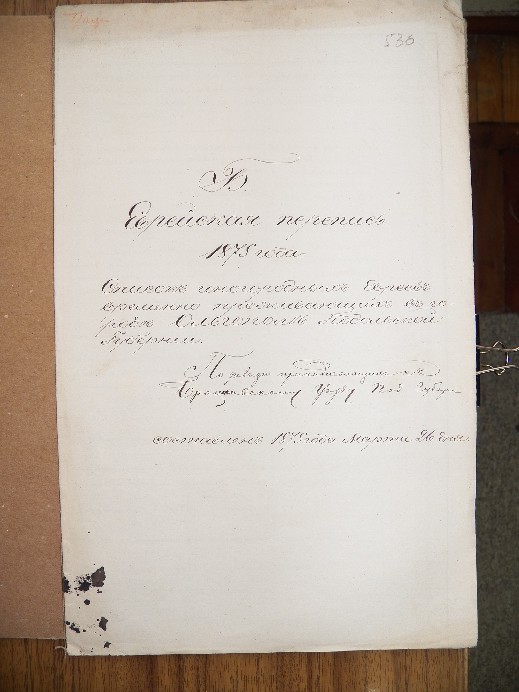 536
Б.
Еврейская перепись
1875 года
Списокъ иногороднымъ Евреевъ
временно проживающихъ въ го
родѣ Ольгополѣ Подольской
Губерніи.
По
Уѣзду Под Губерн
составленъ 1875 года Марта 26 дня